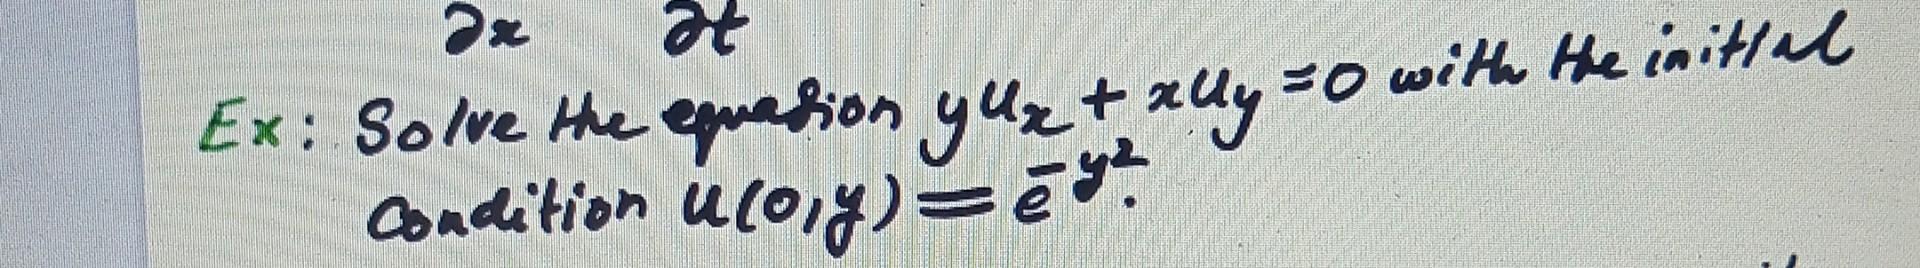 ∂x ∂t
Ex: Solve the equation yuₓ + xu_y = 0 with the initial
Condition u(0,y) = e^{-y²}.